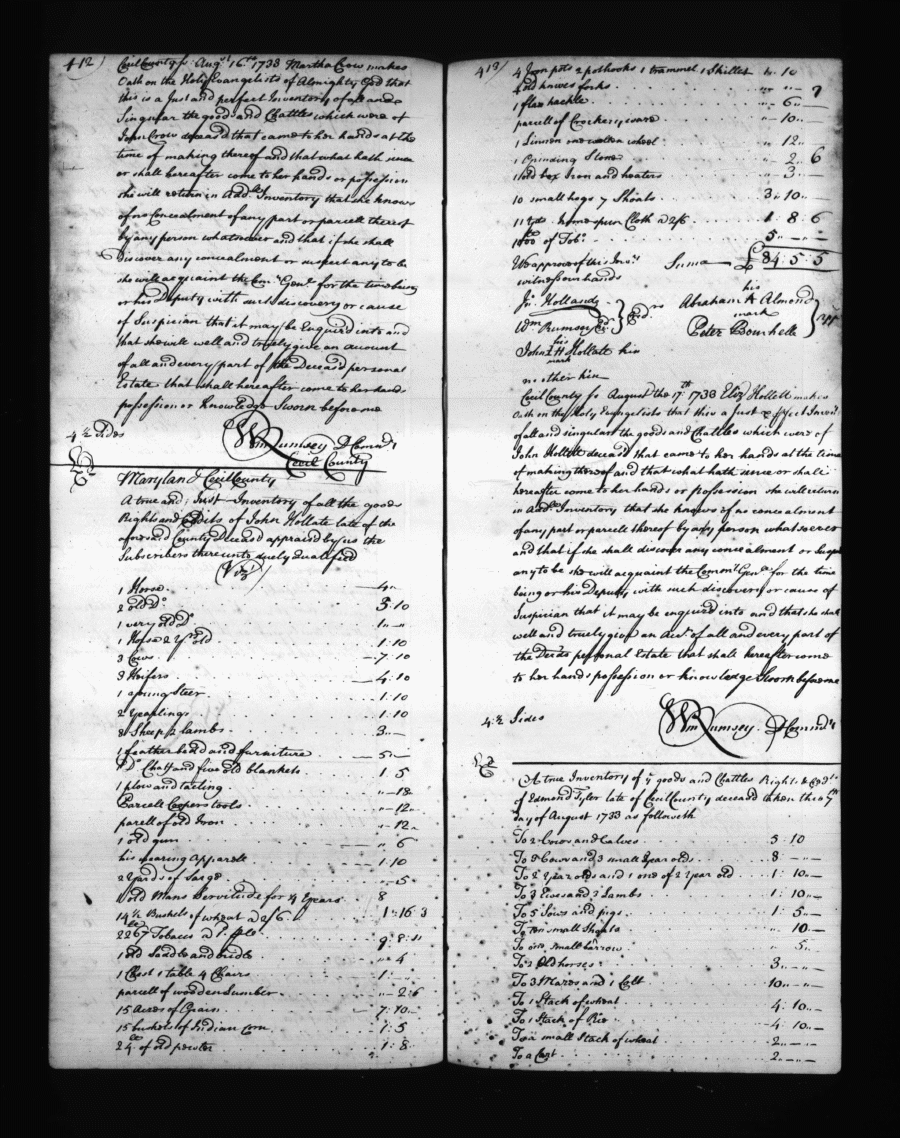 412)
Cecil County ss. Augt. 16th. 1733 Martha Crow makes
Oath on the Holy Evangelists of Almighty God that
this is a Just and perfect Inventory of all and
Singular the goods and Chattles which were of
John Crow deceasd that came to her hands at the
time of making thereof and that what hath since
or shall hereafter come to her hands or possession
she will return in Addl. Inventory that she knows
of no Concealment of any part or parcell thereof
by any person whatsoever and that if she shall
discover any concealment or suspect any to be
she will acquaint the Com: Genl. for the time being
or his Deputy with such discovery or cause
of Suspician that it may be Enquired into and
that she will well and truely give an account
of all and every part of the Deceasd personal
Estate that shall hereafter come to her hands
possession or knowledge Sworn before me
4 ½ Sides
Wm Rumsey D Comrd:
Cecil County
Maryland Cecil County
A true and Just Inventory of all the goods
Rights and Credits of John Hollate late of the
aforesaid County Deceasd appraisd by us the
Subscribers thereunto duely Qualified
(Viz)
1 Horse 4 " "
2 old Do. 5: 10
1 very old Do 1 " "
1 Horse 2 Yr. old 1: 10
3 Cows 7: 10
3 Heifers 4: 10
1 spring Steer 1: 10
2 Yearlings 1: 10
8 Sheep 2 lambs 3 " —
1 feather bead and furniture 5 —
1 Do. Chaff and five old blankets 1: 5
1 plow and tacling " — 18
Parcell Coopers tools " — 12 "
parcell of old Iron " — 12
1 old gun " 6
his wearing Apparell 1: 10
2 Yards of Sarge " — 5
1 old Mans Servitude for 4 Years 8
14 ½ Bushels of wheat a 2/6 1: 16: 3
2267 Tobacco a 9: 8: 11
1 old Saddle and bridle " 4
1 Chest 1 table 4 Chairs 1:
parcell of wooden Lumber " 2: 6
15 Acres of Grain 7: 10
15 bushels of Indian Corn 1: 5
24 lb of old pewter 1: 8
413)
4 Iron pots 2 pothooks 1 trammel 1 Skillet 4: 10
old knives forks " " — 9
1 flax hackle " 6 —
parcell of Crockery ware " 10 —
1 Linnen one wollen wheel " 12
1 Grinding Stone " 2 " 6
1 old box Iron and heaters " 3 —
10 small hogs 7 Shoats 3: 10 —
11 Yds. homespun Cloth a 2/6 1: 8: 6
1000 of Tobo. 5 " — " —
We approve of this Invy. Suma £84: 5: 5
witness our hands
Jn: Holland
Wm. Rumsey
Crd.rs
his
Abraham A Almond
mark
Peter Bouchelle
John IH Hollate kin
his
mark
no other kin
Cecil County ss August the 17th 1733 Eliz Hollett makes
Oath on the Holy Evangelists that this a Just & pfect Invent
of all and singular the goods and Chattles which were of
John Hollett deceasd that came to her hands at the time
of making thereof and that what hath since or shall
hereafter come to her hands or possession she will return
in Addl. Inventory that she knows of no concealment
of any part or parcell thereof by any person whatsoever
and that if she shall discover any concealment or Suspect
any to be she will acquaint the Comm: Genl. for the time
being or his Deputy with such discovery or cause of
Suspician that it may be enquired into and that she shall
well and truely give an Acct. of all and every part of
the Decds personal Estate that shall hereafter come
to her hands possession or knowledge Sworn before me
4: ½ Sides
Wm Rumsey D Comrd:
A true Inventory of ye goods and Chattles Rights & Crdts
of Edmond Tyler late of Cecil County deceasd taken this 7th
day of August 1733 as followeth
To 2 Cows and Calves 5 10
To 3 Cows and 3 small Year olds 8 — " —
To 2 Year olds and 1 one of 2 Year old 1: 10 —
To 3 Ewes and 3 Lambs 1: 10 —
To 5 Sows and pigs 1: 5 —
To Ten small Shoats " 10 —
To one small barrow " 5 —
To 2 Old horses 3 " — " —
To 3 Mares and 1 Colt 10 " — " —
To 1 Stack of wheat 4: 10 —
To 1 Stack of Rie 4: 10 —
To a small Stack of wheat 2 " — " —
To a Cart 2 " — " —